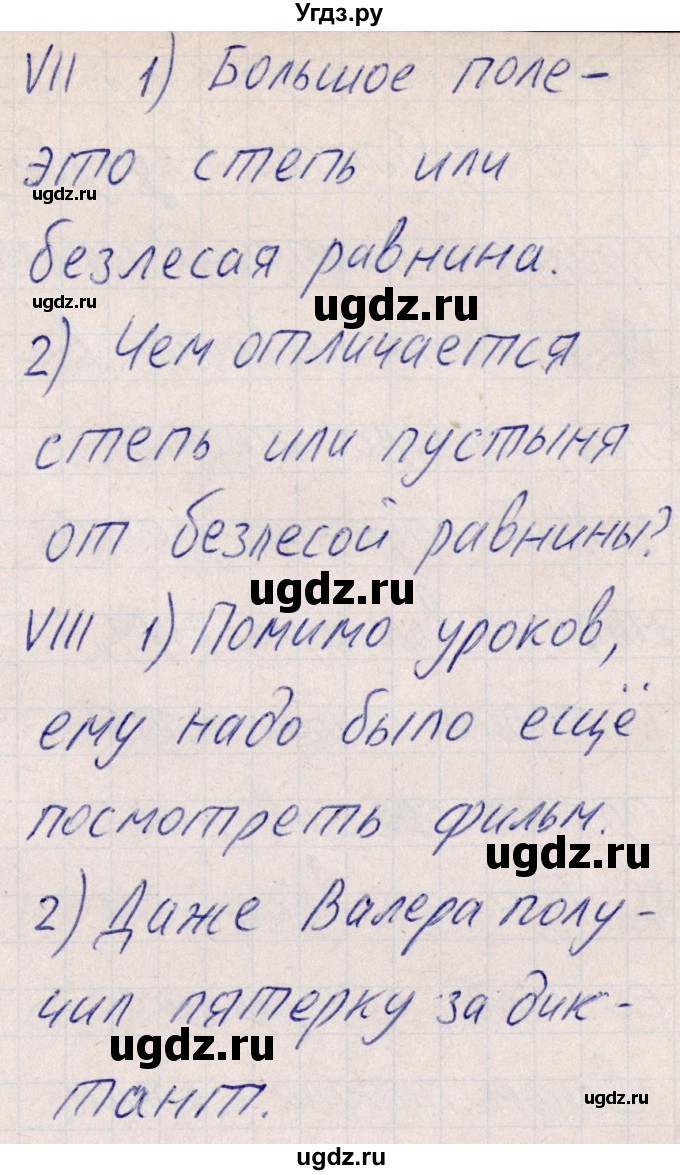 Угдз.ру
VII 1) Большое поле-
это степь или
ugdz.ru
безлесая равнина.
ugdz.ru
ugdz.ru
2) Чем отличается
степь или пустыня
от безлесой равнины?
ugdz.ru
VIII 1) Помимо уроков,
ему надо было ещё
посмотреть фильм.
ugdz.ru
2) Даже Валера полу-
чил пятерку за дик-
ugdz.ru
тант.
ugdz.ru
ugdz.ru